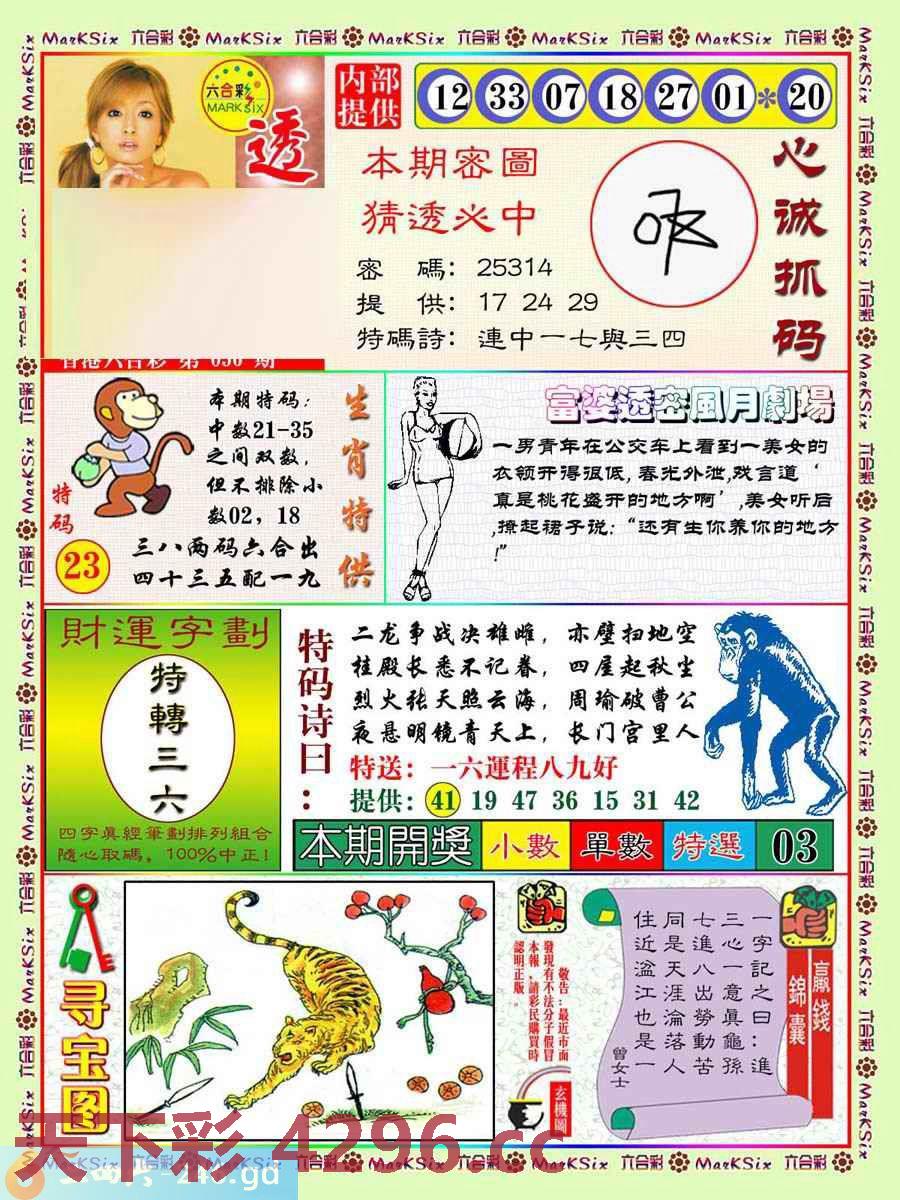 MarKSix 六合彩 MarKSix 六合彩 MarKSix 六合彩 MarKSix 六合彩 MarKSix 六合彩
六合彩
MARK Six
透
内部
提供
12 33 07 18 27 01 * 20
本期密圖
猜透必中
密 碼：25314
提 供：17 24 29
特碼詩：連中一七與三四
心诚抓码
生肖特供
本期特码：
中数21-35
之间双数，
但不排除小
数02，18
特码
23
三八两码六合出
四十三五配一九
富婆透密風月劇場
一男青年在公交车上看到一美女的
衣领开得很低，春光外泄，戏言道‘
真是桃花盛开的地方啊’，美女听后
，撩起裙子说：“还有生你养你的地方
！”
財運字劃
特轉三六
四字真經筆劃排列組合
隨心取碼，100%中正！
特码诗曰：
二龙争战决雄雌，赤壁扫地空
桂殿长悉不记春，四屋起秋尘
烈火张天照云海，周瑜破曹公
夜悬明镜青天上，长门宫里人
特送：一六運程八九好
提供：41 19 47 36 15 31 42
本期開獎 小數 單數 特選 03
寻宝图
敬告：最近市面
發現有不法分子假冒
本報，請彩民購買時
認明正版。
玄機圖
贏錢
錦囊
一字記之曰：進
三心一意真龜孫
七進八出勞動苦
同是天涯淪落人
住近湓江也是一
曾女士
天下彩 4296.cc
MarKSix 六合彩 MarKSix 六合彩 MarKSix 六合彩 MarKSix 六合彩